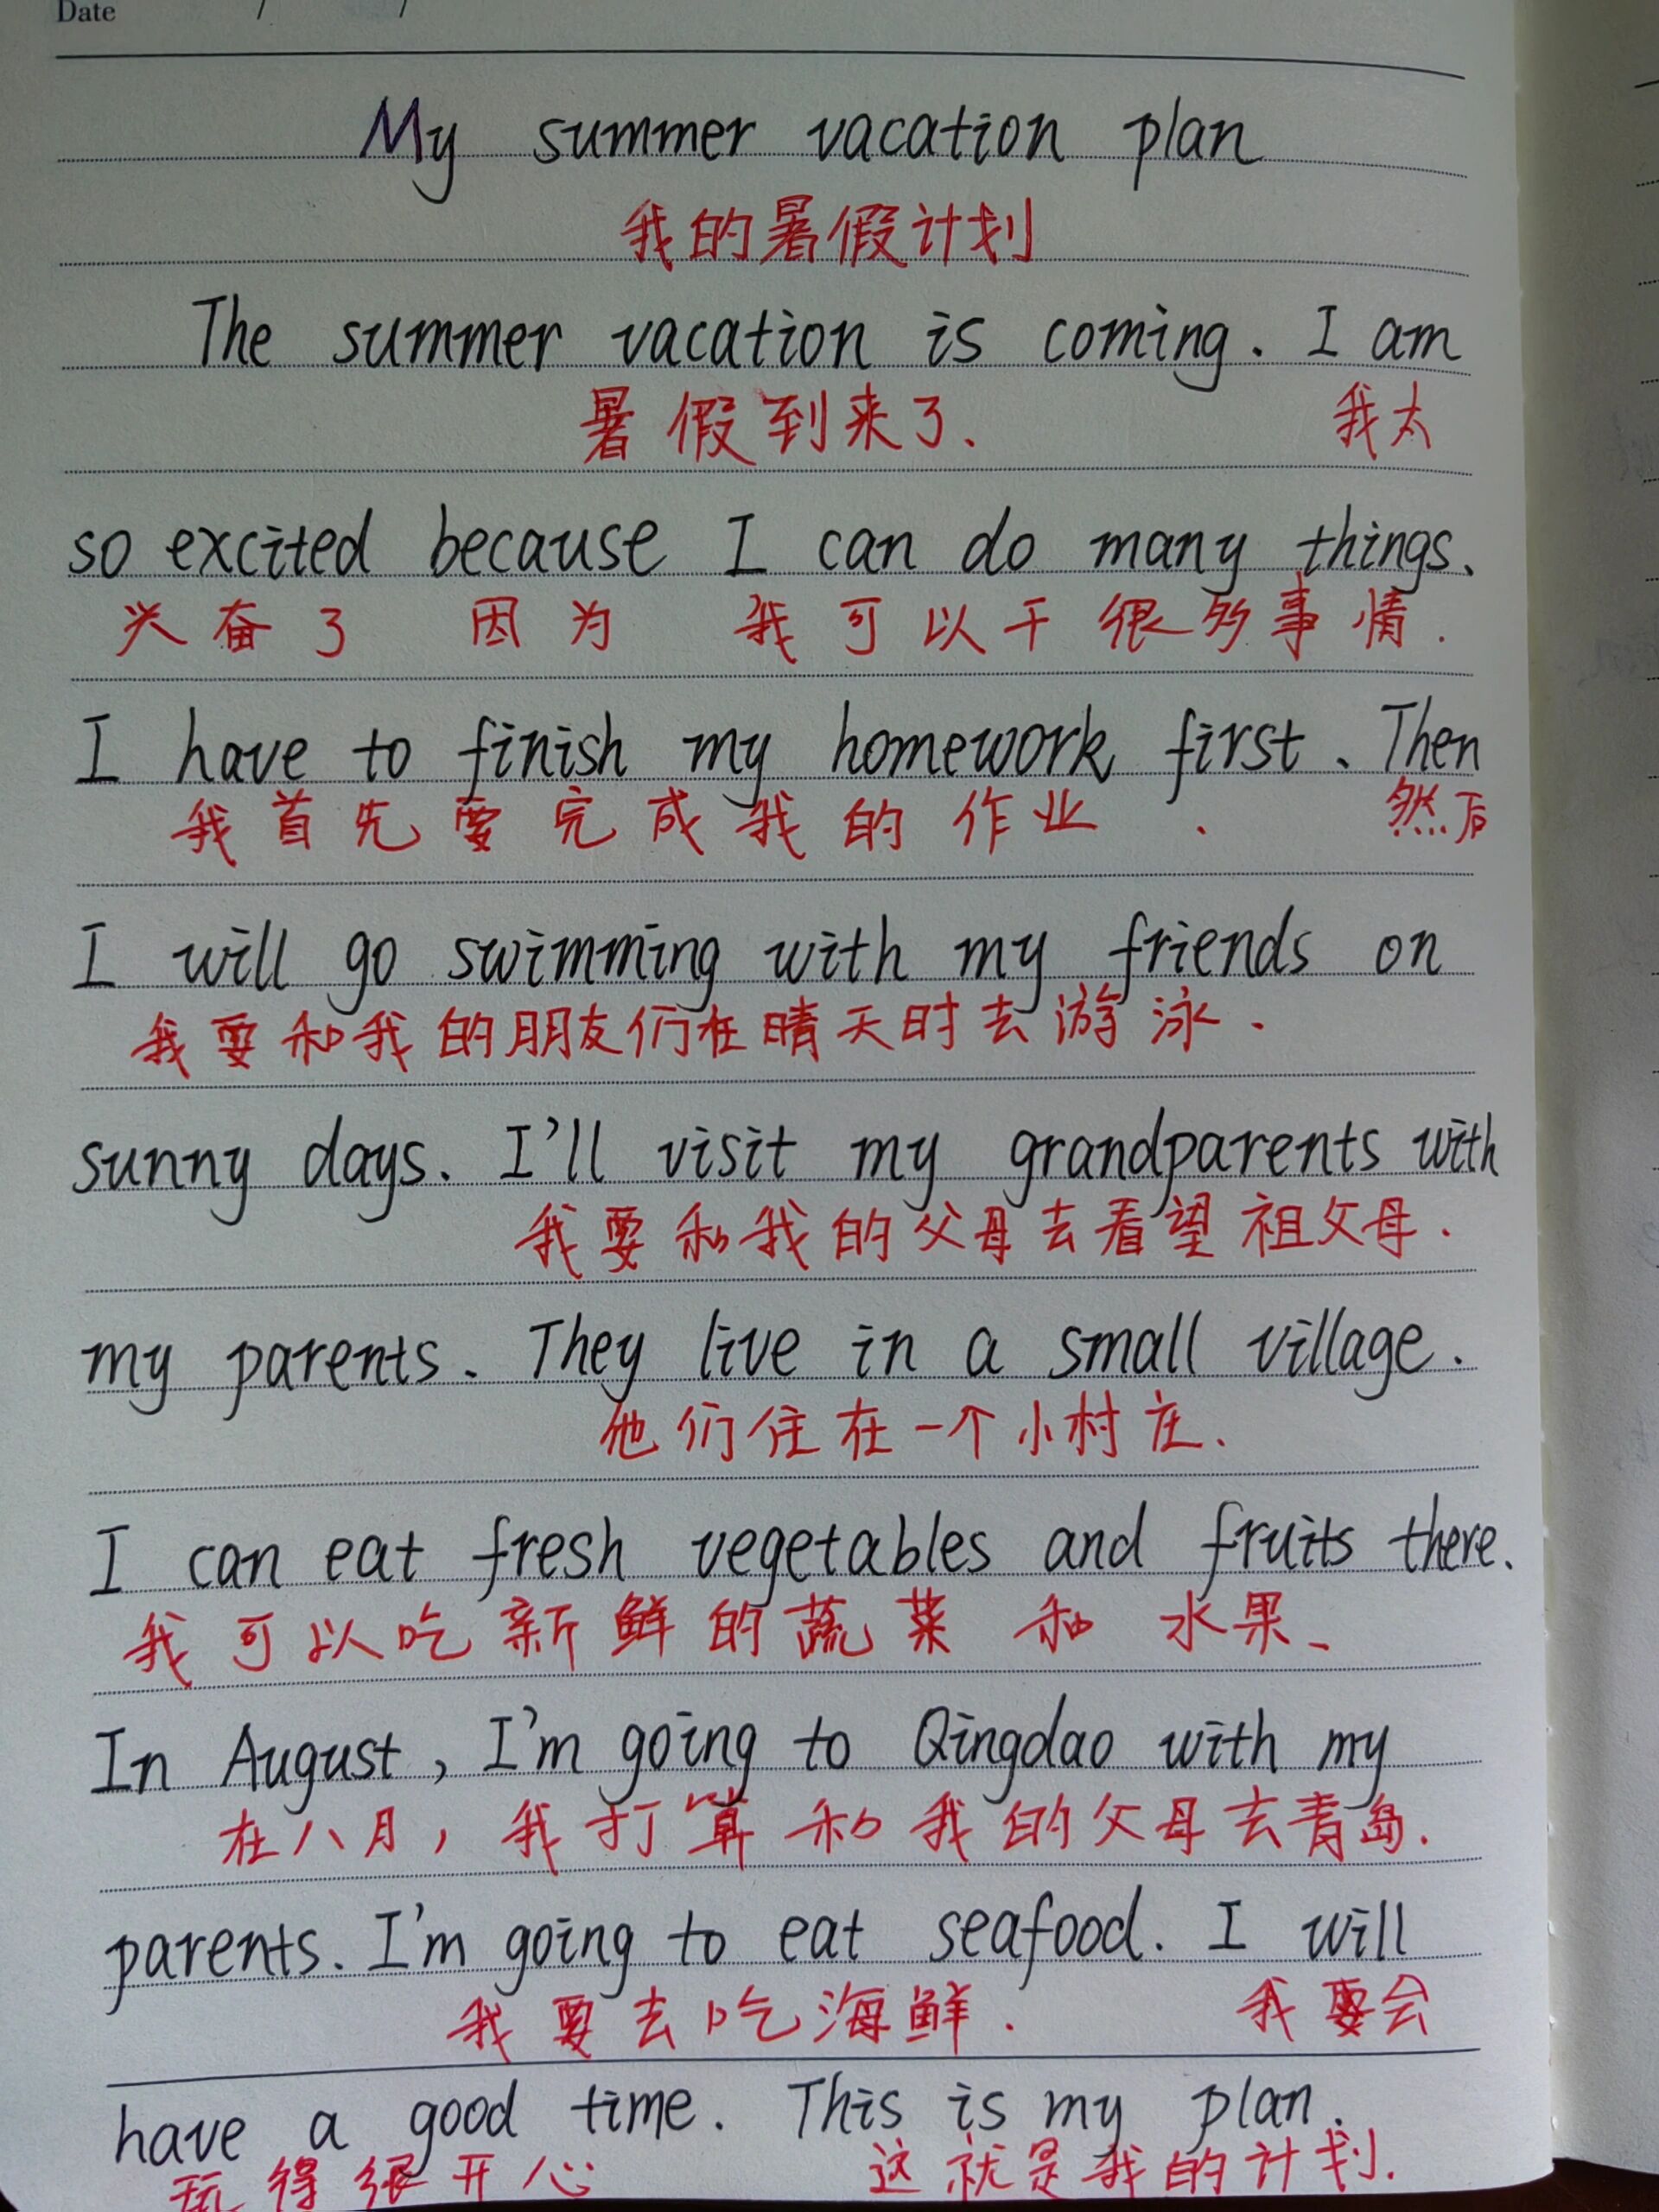 Date / /
My summer vacation plan
我的暑假计划
The summer vacation is coming. I am
暑假到来了. 我太
so excited because I can do many things.
兴奋了 因为 我可以干很多事情.
I have to finish my homework first. Then
我首先要完成我的作业. 然后
I will go swimming with my friends on
我要和我的朋友们在晴天时去游泳.
sunny days. I'll visit my grandparents with
我要和我的父母去看望祖父母.
my parents. They live in a small village.
他们住在一个小村庄.
I can eat fresh vegetables and fruits there.
我可以吃新鲜的蔬菜和水果.
In August, I'm going to Qingdao with my
在八月, 我打算和我的父母去青岛.
parents. I'm going to eat seafood. I will
我要去吃海鲜. 我要会
have a good time. This is my plan.
玩得很开心 这就是我的计划.